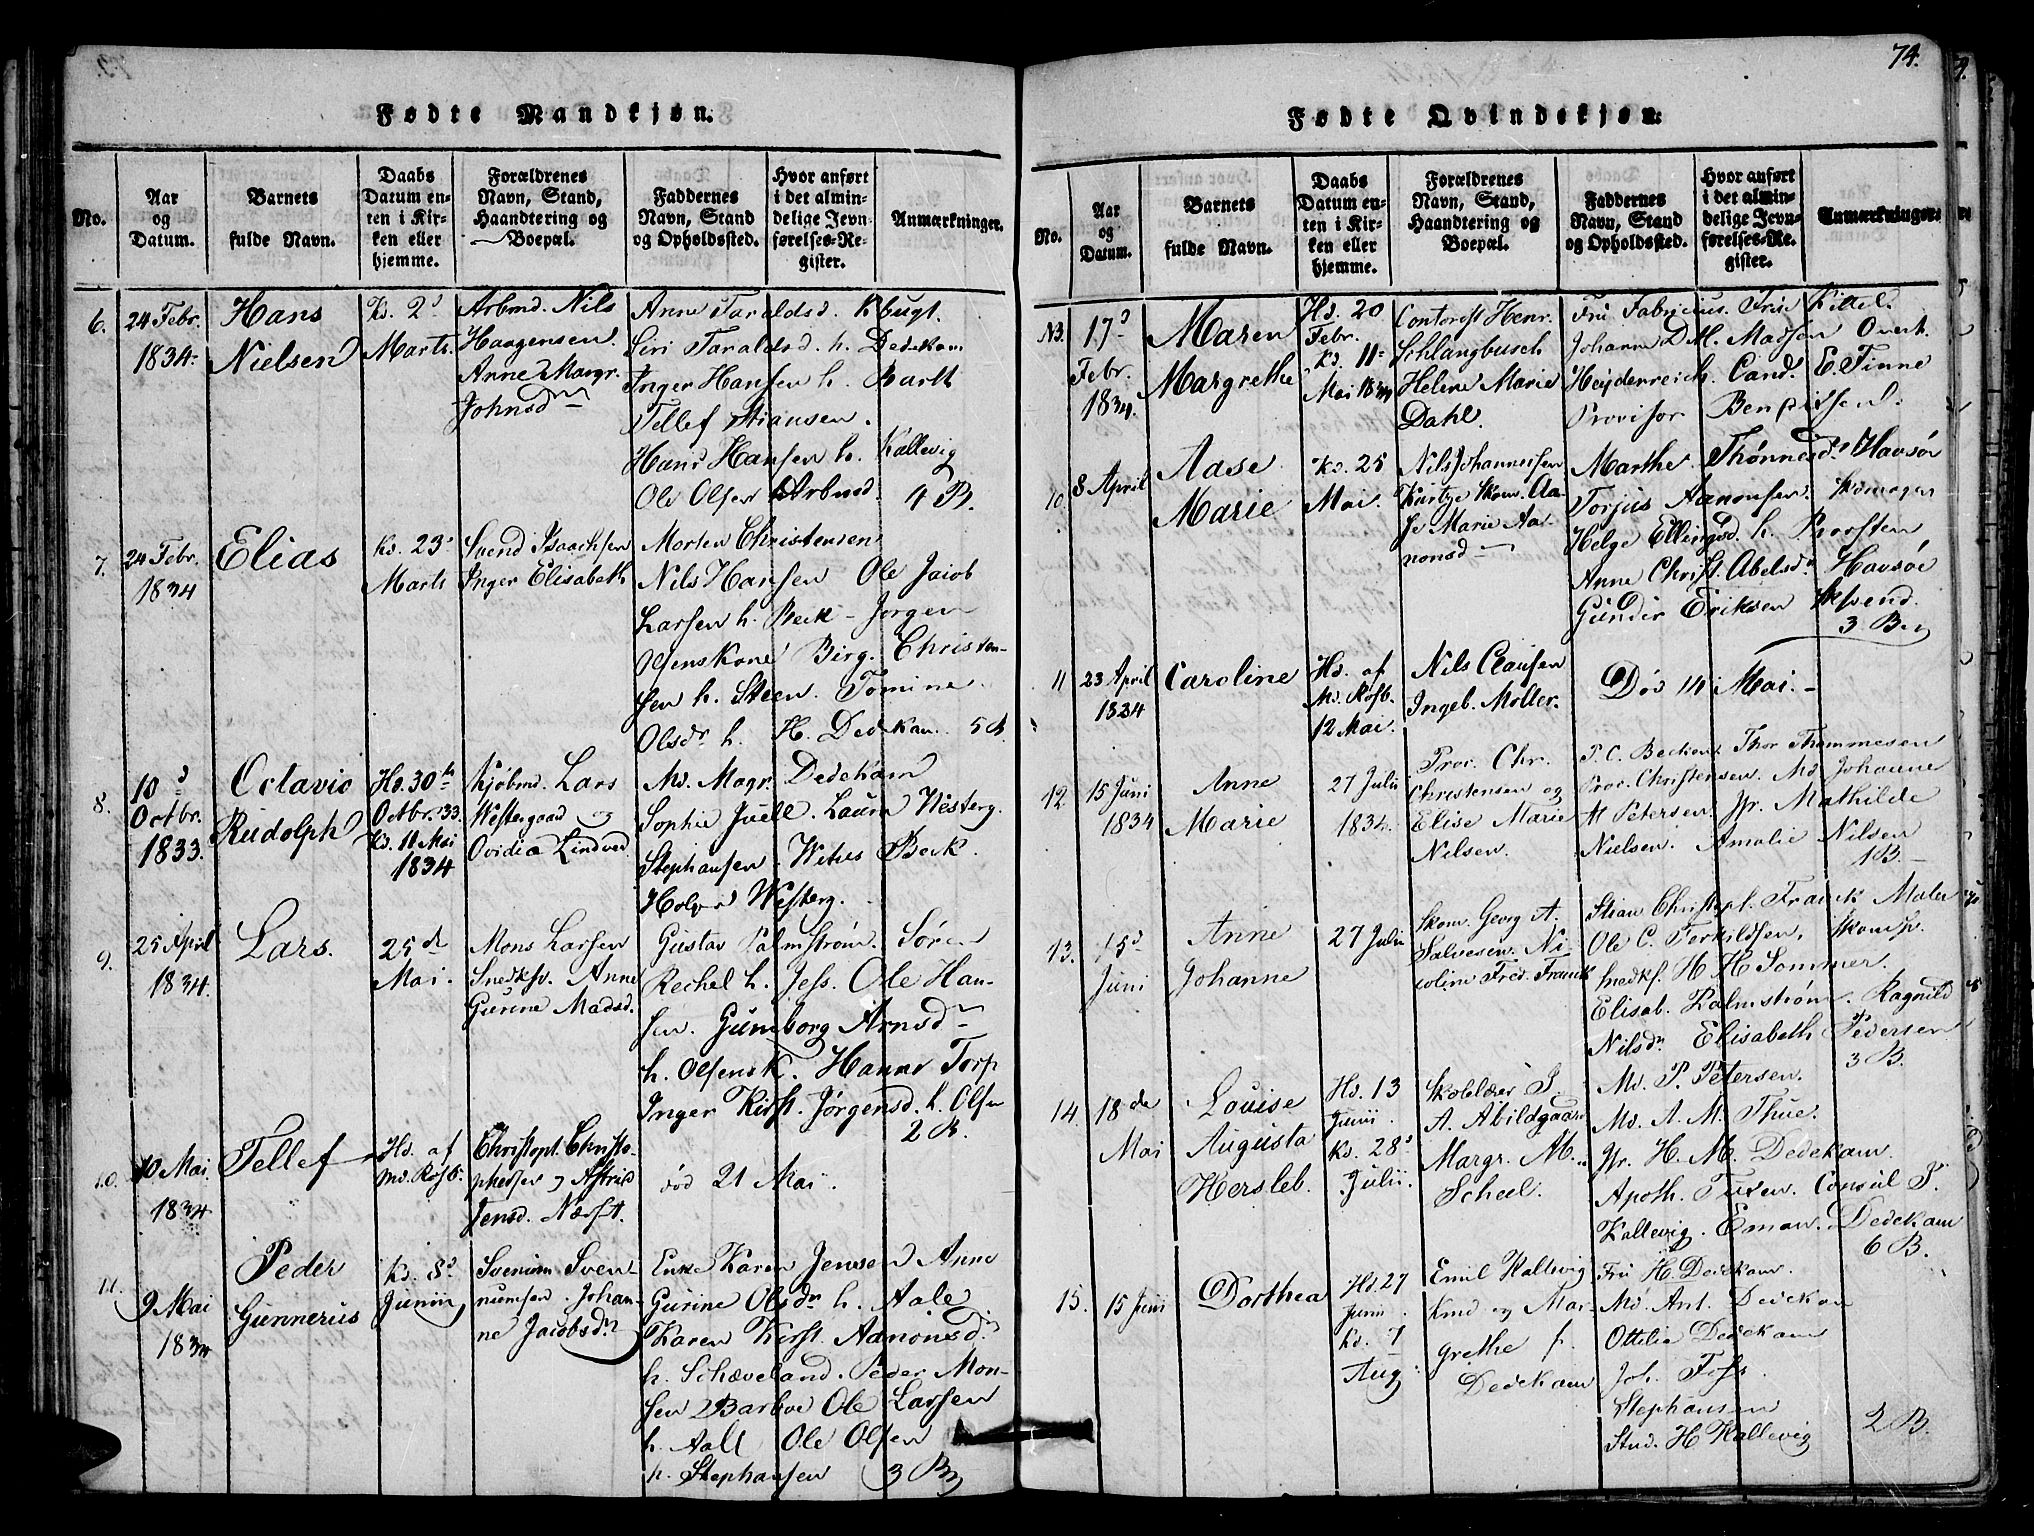 74.
Fødte Mandkjøn.
No.
Aar og Datum.
Barnets fulde Navn.
Daabs Datum enten i Kirken eller hjemme.
Forældrenes Navn, Stand, Haandtering og Boepæl.
Faddernes Navn, Stand og Opholdssted.
Hvor anført i det almindelige Jevnførelses-Register.
Anmærkninger.
6.
24 Febr.
1834.
Hans
Nielsen
Kd. 2d
Marts.
Arbmd. Nils
Haagensen
Anne Margr.
Johnsd
Anne Taraldsd. Kbugt.
Siri Taraldsd. h. Dedekam
Inger Hansen h. Barth
Tellef Stiansen.
Hans Hansen h. Kallevig
Ole Olsen Arbmd. 4 B.
7.
24 Febr.
1834
Elias
Kd. 23d
Marts
Svend Isaachsen
Inger Elisabeth
Morten Christensen
Nils Hansen Ole Jacob
Larsen h. Beck - Jørgen
Olsens Kone Birg. Christen-
sen h. Steen. Tomine
Olsdr h. H. Dedekam. 5 B.
8.
10d
Octbr.
1833.
Octavio
Rudolph
Hd. 30te
Octbr. 33.
Kd. 11 Mai
1834
Kjøbmd. Lars
Westergaard og
Ovidia Lindved
Md. Magr. Dedekam
Sophie Juell. Laura Westerg.
Stephansen. Beck.
Westerg.
9.
25 April
1834.
Lars.
25de
Mai.
Mons Larsen
Snedksv. Anne
Gurine Madsd.
Gustav Palmstrøm. Søren
Rechel h. Jess. Ole Han-
sen. Gunborg Arnsd
h. Olsensk. Hanne Torp
Inger Kirst. Jørgensd. h. Olsen
2 B.
10.
10 Mai
1834
Tellef
Hd. af
Md. Røsb.
Christoph. Christo-
phersen og Astrid
Jensd. Nærst.
død 21 Mai.
11.
9 Mai
1834
Peder
Gunnerius
Kd. 8d
Junii
Svenum Sven-
numsen. Johan-
ne Jacobsd.
Enke Karen Jensen Anne
Gurine Olsdr h. Aale
Karen Kirst. Aanonsd.
h. Schæveland. Peder Mon-
sen Barboe Ole Larsen
h. Aall Ole Olsen
h. Stephansen 3 B
Fødte Qvindekjøn.
No.
Aar og Datum.
Barnets fulde Navn.
Daabs Datum enten i Kirken eller hjemme.
Forældrenes Navn, Stand, Haandtering og Boepæl.
Faddernes Navn, Stand og Opholdssted.
Hvor anført i det almindelige Jevnførelses-Register.
Anmærkninger.
N3.
17d
Febr.
1834.
Maren
Margrethe
Hd. 20
Febr.
Kd. 11
Mai 1834
Contorist Henr.
Schlangbusch
Helene Marie
Dahl.
Fru Fabricius. Kittel.
Johanne D. M. Madsen Overt.
Heydenreich. Cand. E. Finne
Provisor
10
8 April
Aase
Marie
Kd. 25
Mai.
Nils Johannessen
Skom. Aa-
se Marie Aa-
nonsd
Marthe Thønnesd. Havsøe
Torjus Aanonsen.
Helge Ellingsd. h. Prosten
Anne Christ. Abelsd. Havsøe
Gunder Eriksen
3 B
11
23 April
1834
Caroline
Hd. af
Md. Røsb.
12 Mai.
Nils Clausen
Ingeb. Møller.
Død 14 Mai.
12
15 Juni
1834
Anne
Marie
27 Julii
1834.
Proc. Chr.
Christensen og
Elise Marie
Nilsen.
P. C. Becken Thor Thommesen
Proc. Christensen. Md Johanne
M Petersen. Jfr. Mathilde
Nielsen. Amalie Nilsen
1 B.
13.
15d
Juni
Anne
Johanne
27 Julii
Skom. Georg A.
Salvesen. Ni-
coline Fred. Franck
Stian Christoph. Franck Maler
Ole C. Terkildsen. Skomsv.
Snedks. H H Sommer.
Elisab. Palmstrøm. Ragnild
Nilsdr. Elisabeth Pedersen
3 B.
14.
18de
Mai
Louise
Augusta
Hersleb.
Hd. 13
Junii
Kd. 28d
Julii.
Skolelærer I.
A. Abildgaard
Margr. M.
Scheel.
Md. P. Petersen.
Md. A. M. Thue.
Jfr. H. M. Dedekam.
Apoth. Tuxen. Consul S.
Kallevig. Eman. Dedekam
6 B.
15.
15 Juni
Dorthea
Hd. 27
Junii
Kd. 7
Aug
Emil Kallevig
Kmd og Mar-
grethe f.
Dedekam
Fru H. Dedekam.
Md. Ant. Dedekam
Ottilia Dedekam
Joh. Foss.
Stephansen
Stud. H Kallevig 2 B.